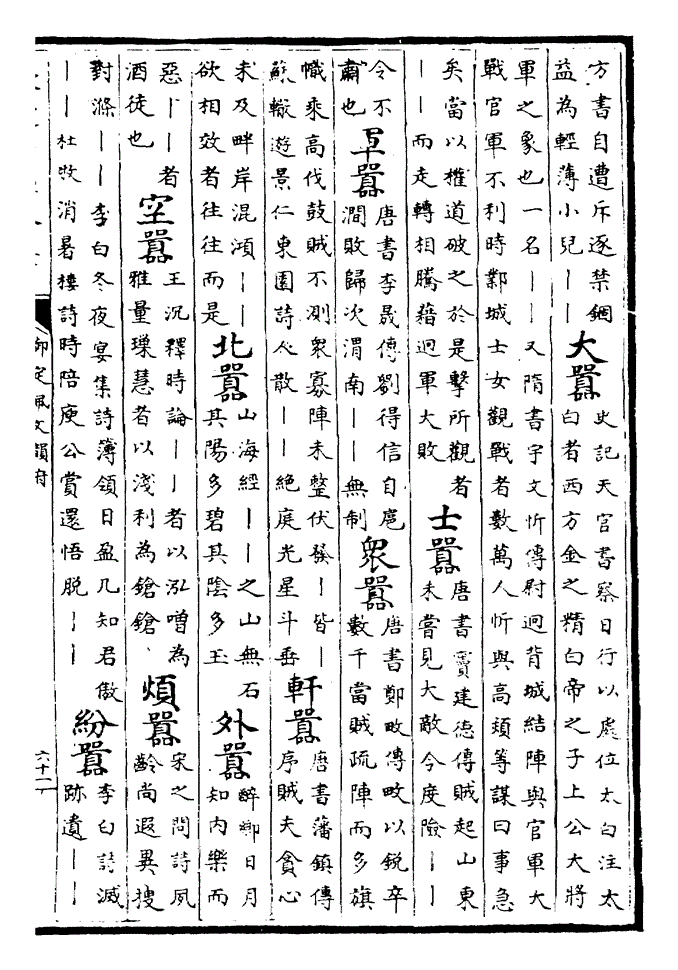 方書自遭斥逐禁錮
益為輕薄小兒｜｜
大囂
史記天官書察日行以處位太白注太
白者西方金之精白帝之子上公大將
軍之象也一名｜｜又隋書宇文忻傳尉迥背城結陣與官軍大
戰官軍不利時鄴城士女觀戰者數萬人忻與高熲等謀曰事急
矣當以權道破之於是擊所觀者
｜｜而走轉相騰藉迥軍大敗
士囂
唐書竇建德傳賊起山東
未嘗見大敵今度險｜｜
令不
肅也
軍囂
唐書李晟傳劉得信自扈
澗敗歸次渭南｜｜無制
衆囂
唐書鄭畋傳畋以銳卒
數千當賊疏陣而多旗
幟乘高伐鼓賊不測衆寡陣未整伏發｜皆｜
蘇轍遊景仁東園詩人散｜｜絕庭光星斗垂
軒囂
唐書藩鎮傳
序賊夫貪心
未及畔岸混澒｜｜
欲相效者往往而是
北囂
山海經｜｜之山無石
其陽多碧其陰多玉
外囂
醉鄉日月
知内樂而
惡｜｜者
酒徒也
空囂
王沉釋時論｜｜者以泓噌為
雅量璅慧者以淺利為鎗鎗
煩囂
宋之問詩夙
齡尚遐異搜
對滌｜｜李白冬夜宴集詩簿領日盈几知君傲
｜｜杜牧消暑樓詩時陪庾公賞還悟脫｜｜
紛囂
李白詩滅
跡遺｜｜
御定佩文韻府